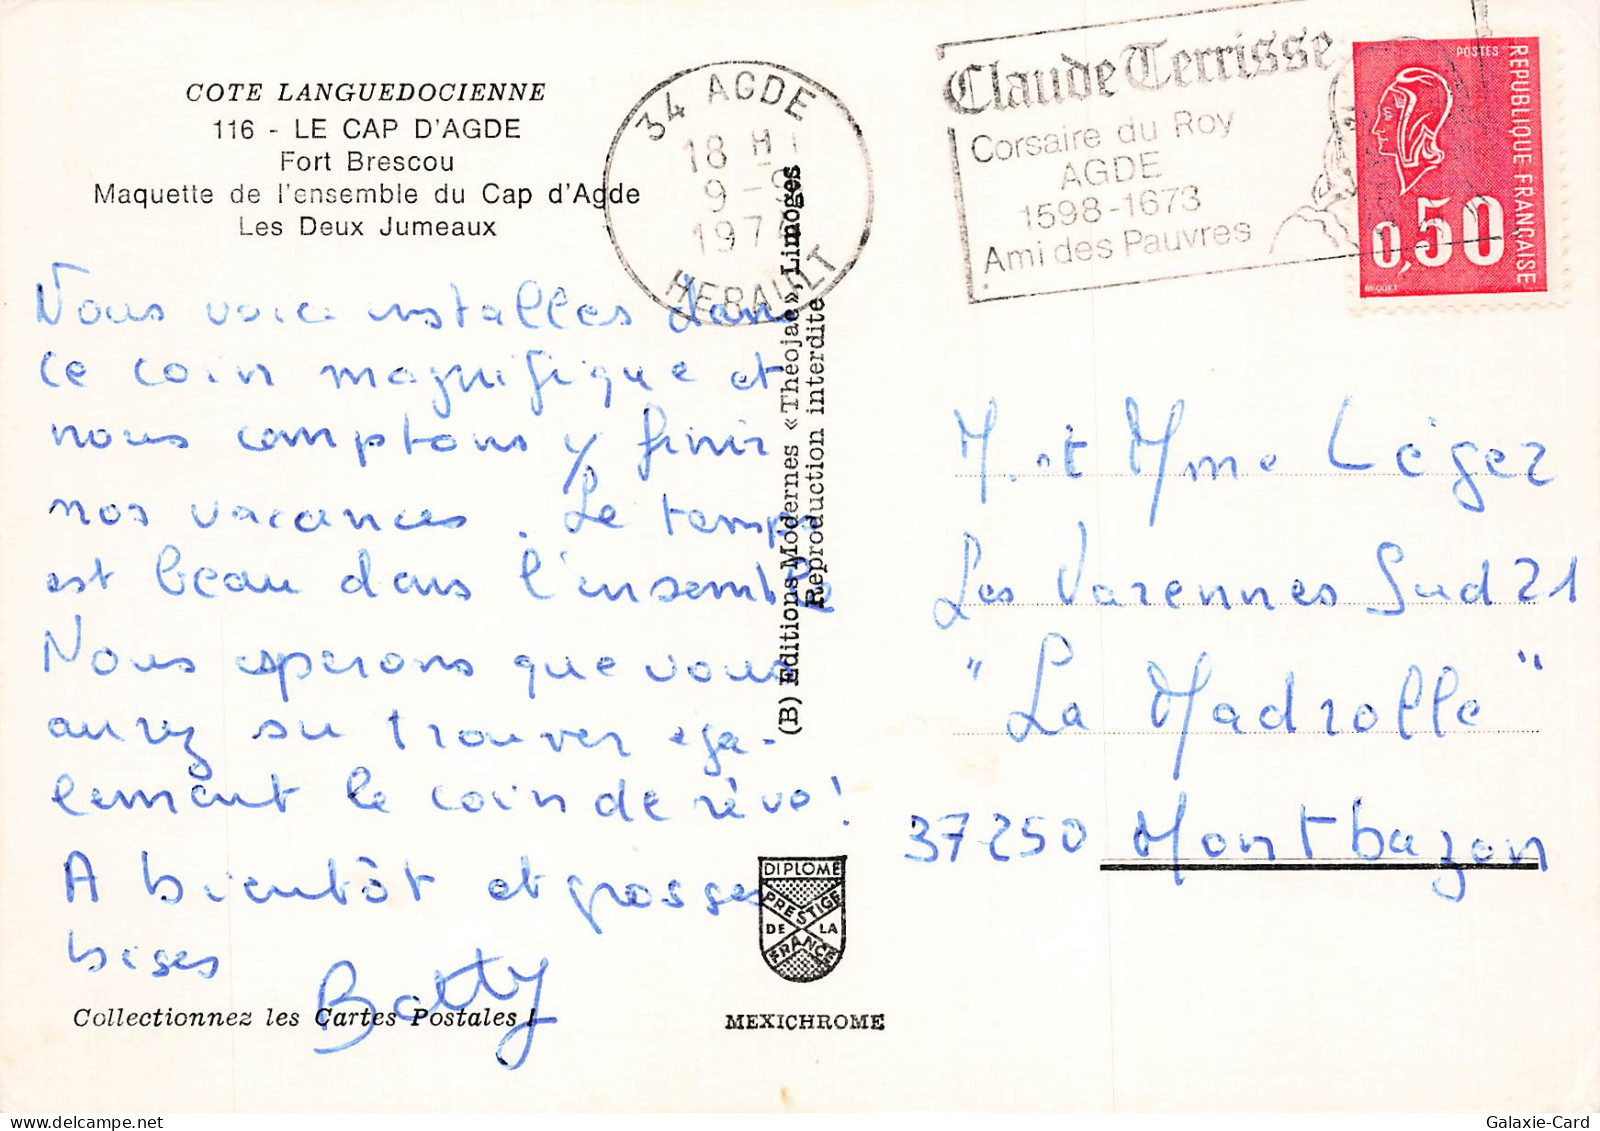 COTE LANGUEDOCIENNE
116 - LE CAP D'AGDE
Fort Brescou
Maquette de l'ensemble du Cap d'Agde
Les Deux Jumeaux
Nous voici installés dans
ce coin magnifique et
nous comptons y finir
nos vacances. Le temps
est beau dans l'ensemble
Nous esperons que vous
aurez su trouver éga-
lement le coin de rêve !
A bientôt et grosses
bises
Betty
Collectionnez les Cartes Postales !
34 AGDE
18 H
9-9
197
HERAULT
(B) Editions Modernes « Théojac », Limoges
Reproduction interdite
DIPLOME
PRESTIGE
DE LA
FRANCE
MEXICHROME
Claude Terrisse
Corsaire du Roy
AGDE
1598-1673
Ami des Pauvres
POSTES
REPUBLIQUE FRANÇAISE
0,50
BEQUET
M. et Mme Léger
Les Varennes Sud 21
"La Madrolle"
37250 Montbazon
Galaxie-Card